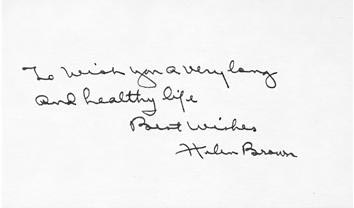 To wish you a very long
and healthy life
Best Wishes
Helen Brown